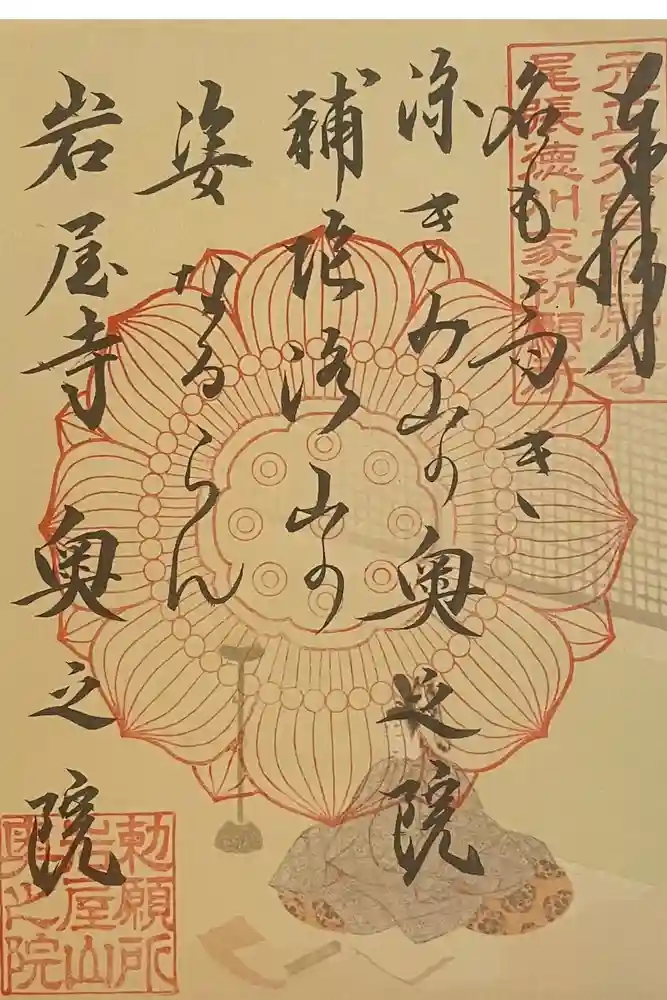 奉拝
元正天皇勅願寺
尾張徳川家祈願所
名も高き
深きみ山の奥之院
補陀洛山の
姿なるらん
岩屋寺奥之院
勅願所
岩屋山
奥之院